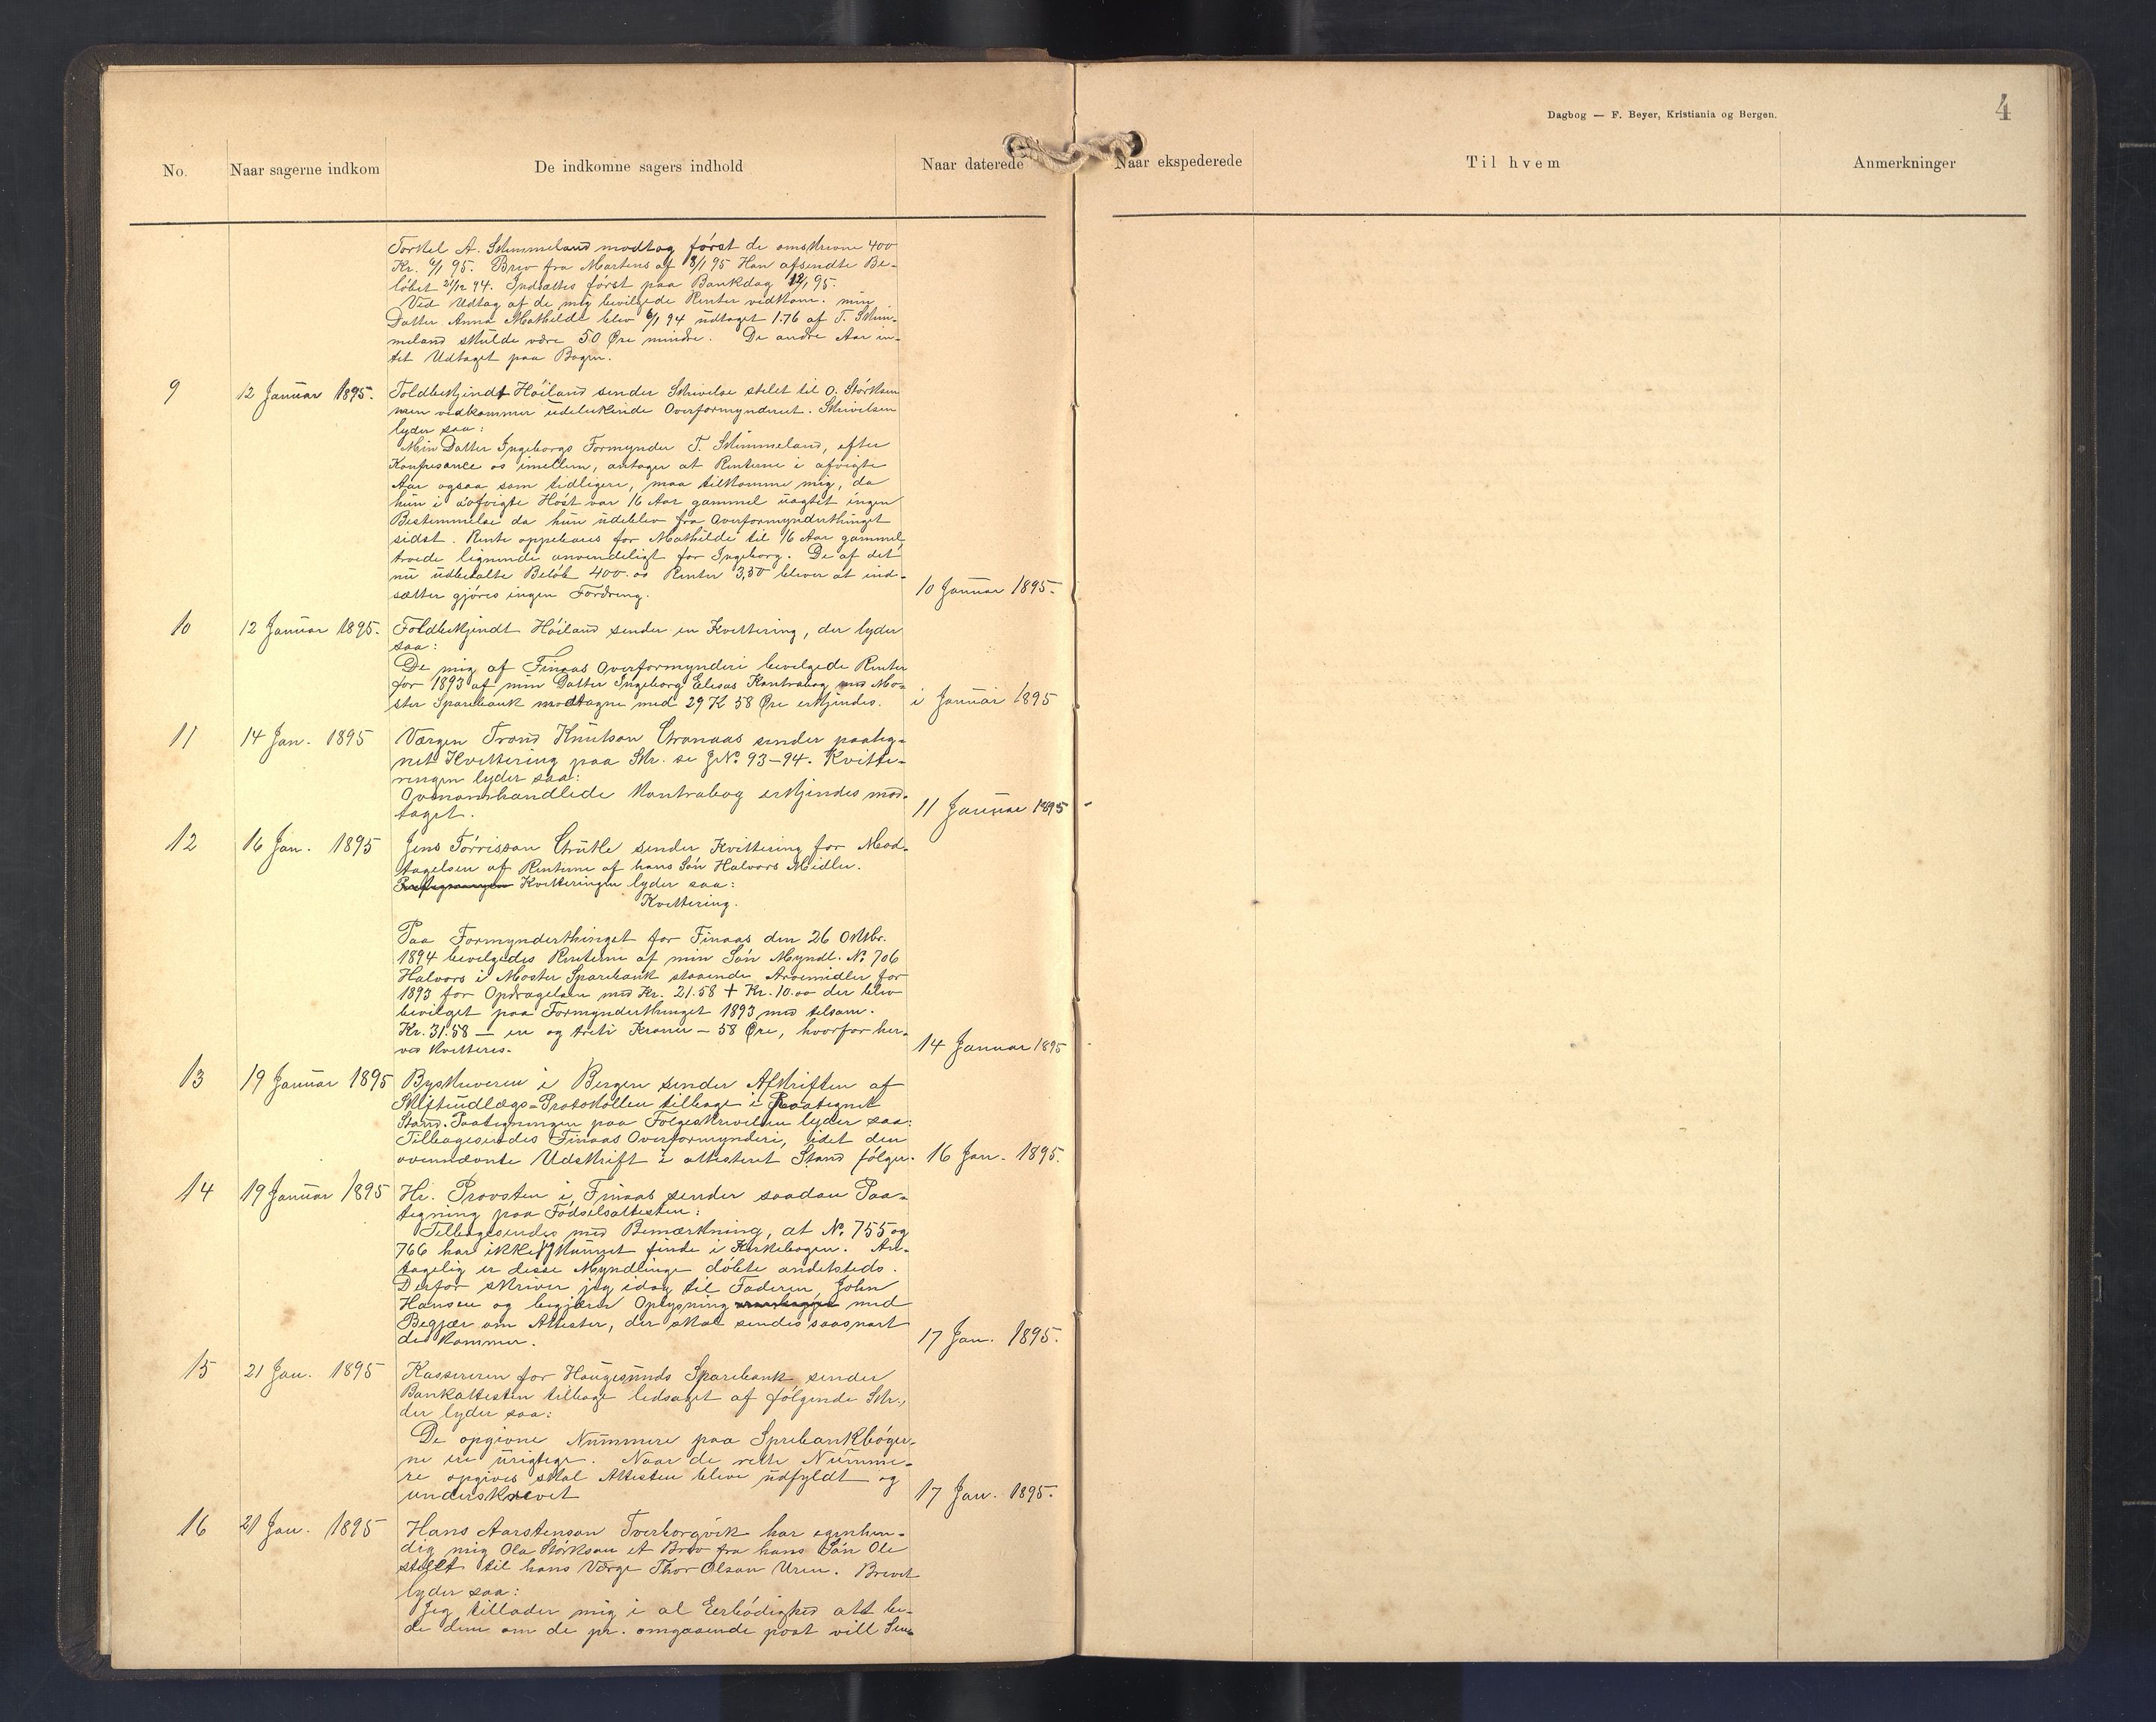 Dagbog — F. Beyer, Kristiania og Bergen.
4
No.
Naar sagerne indkom
De indkomne sagers indhold
Naar daterede
Naar ekspederede
Til hvem
Anmerkninger
Torkel A. Skimmeland modtog først de omskrevne 400
Kr. 9/1 95. Brev fra Martens af 8/1 95 Han afsendte Be-
løbet 21/12 94. Indsættes først paa Bankdag 12/1 95.
Ved Udtag af de mig bevilgede Renter vidkom. min
Datter Anna Mathilde blev 6/1 94 udtaget 1.76 af T. Skim-
meland skulde være 50 Øre mindre. De andre Aar in-
tet Udtaget paa Bogen.
9
12 Januar 1895.
Toldbetjendt Høiland sender Skrivelse stilet til O. Størksen
men vedkommer udelukkende Overformynderiet. Skrivelsen
lyder saa:
Min Datter Ingeborgs Formynder T. Skimmeland, efter
Konferance os imellem, antager at Renterne i afvigte
Aar ogsaa som tidligere, maa tilkomme mig, da
hun i afvigte Høst var 16 Aar gammel uagtet ingen
Bestemmelse da hun udeblev fra Overformynderthinget
sidst. Rente oppebares for Mathilde til 16 Aar gammel,
troede lignende anvendeligt for Ingeborg. De af det
nu udbetalte Beløb 400.00 Renter 3,50 bliver at ind-
sætter gjøres ingen Fordring.
10 Januar 1895.
10
12 Januar 1895.
Toldbetjendt Høiland sender en Kvittering, der lyder
saa:
De mig af Finaas Overformynderi bevilgede Renter
for 1893 af min Datter Ingeborg Elisas Kontrabog med Mo-
ster Sparebank modtagne med 29 K 58 Øre erkjendes.
i Januar 1895
11
14 Jan. 1895
Værgen Trond Knutson Granaas sender paateg-
net Kvittering paa Skr. se J.No. 93-94. Kvitte-
ringen lyder saa:
Ovenomhandlede Kontrabog erkjendes mod-
taget.
11 Januar 1895
12
16 Jan. 1895
Jens Tørrisson Grutle sender Kvittering for Mod-
tagelsen af Renterne af hans Søn Halvors Midler.
Kvitteringen lyder saa:
Kvittering.
Paa Formynderthinget for Finaas den 26 Oktbr.
1894 bevilgedes Renterne af min Søn Myndl. No. 706
Halvors i Moster Sparebank staaende Arvemidler for
1893 for Opdragelsen med Kr. 21.58 + Kr. 10.00 der blev
bevilget paa Formynderthinget 1893 med tilsam.
Kr. 31.58 — en og treti Kroner — 58 Øre, hvorfor her-
ved kvitteres.
14 Januar 1895
13
19 Januar 1895
Byskriveren i Bergen sender Afskriften af
Skifteudlægs-Protokollen tilbage i Paategnet
Stand. Paategningen paa Følgeskrivelsen lyder saa:
Tilbagesendes Finaas Overformynderi, idet den
ovennævnte Udskrift i attesteret Stand følger.
16 Jan. 1895.
14
19 Januar 1895
Hr. Provsten i Finaas sender saadan Paa-
tegning paa Fødselsattesten:
Tilbagesendes med Bemærkning, at No. 755 og
766 har ikke jeg kunnet finde i Kirkebogen. An-
tagelig er disse Myndlinge døbte andetsteds.
Derfor skriver jeg idag til Faderen John
Hansen og begjærer Oplysning med
Begjær om Attester, der skal sendes saasnart
de kommer.
17 Jan. 1895.
15
21 Jan. 1895
Kassereren for Haugesunds Sparebank sender
Bankattesten tilbage ledsaget af følgende Skr.,
der lyder saa:
De opgivne Nummere paa Sprebankbøger-
ne ere urigtige. Naar de rette Numme-
re opgives skal Attesten blive udfyldt og
underskrevet
17 Jan. 1895.
16
21 Jan. 1895
Hans Aarstenson Tverborgvik har egenhen-
dig mig Ola Størkson et Brev fra hans Søn Ole
stillet til hans Værge Thor Olson Uren. Brevet
lyder saa:
Jeg tillader mig i al Eerbødighed att be-
de dem om de pr. omgaaende post vill Sen